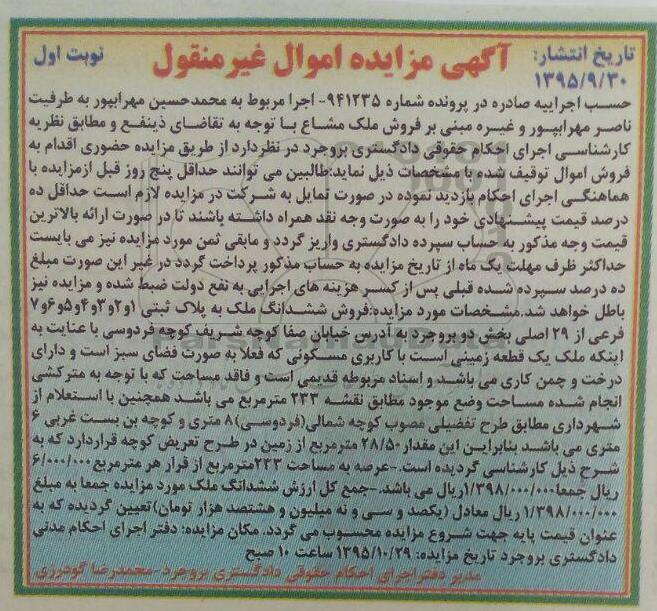 تاریخ انتشار: ۱۳۹۵/۹/۳۰
آگهی مزایده اموال غیرمنقول
نوبت اول
حسب اجراییه صادره در پرونده شماره ۹۴۱۲۳۵- اجرا مربوط به محمدحسین مهرابپور به طرفیت
ناصر مهرابپور و غیره مبنی بر فروش ملک مشاع با توجه به تقاضای ذینفع و مطابق نظریه
کارشناسی اجرای احکام حقوقی دادگستری بروجرد در نظردارد از طریق مزایده حضوری اقدام به
فروش اموال توقیف شده با مشخصات ذیل نماید:طالبین می توانند حداقل پنج روز قبل ازمزایده با
هماهنگی اجرای احکام بازدید نموده در صورت تمایل به شرکت در مزایده لازم است حداقل ده
درصد قیمت پیشنهادی خود را به صورت وجه نقد همراه داشته باشند تا در صورت ارائه بالاترین
قیمت وجه مذکور به حساب سپرده دادگستری واریز گردد و مابقی ثمن مورد مزایده نیز می بایست
حداکثر ظرف مهلت یک ماه از تاریخ مزایده به حساب مذکور پرداخت گردد در غیر این صورت مبلغ
ده درصد سپرده شده قبلی پس از کسر هزینه های اجرایی به نفع دولت ضبط شده و مزایده نیز
باطل خواهد شد.مشخصات مورد مزایده:فروش ششدانگ ملک به پلاک ثبتی ۱و۲و۳و۴و۵و۶و۷
فرعی از ۲۹ اصلی بخش دو بروجرد به آدرس خیابان صفا کوچه شریف کوچه فردوسی با عنایت به
اینکه ملک یک قطعه زمینی است با کاربری مسکونی که فعلا به صورت فضای سبز است و دارای
درخت و چمن کاری می باشد و اسناد مربوطه قدیمی است و فاقد مساحت که با توجه به مترکشی
انجام شده مساحت وضع موجود مطابق نقشه ۲۳۳ مترمربع می باشد همچنین با استعلام از
شهرداری مطابق طرح تفضیلی مصوب کوچه شمالی(فردوسی)۸ متری و کوچه بن بست غربی ۶
متری می باشد بنابراین این مقدار ۲۸/۵۰ مترمربع از زمین در طرح تعریض کوچه قراردارد که به
شرح ذیل کارشناسی گردیده است.-عرصه به مساحت ۲۳۳مترمربع از قرار هر مترمربع ۶/۰۰۰/۰۰۰
ریال جمعا۱/۳۹۸/۰۰۰/۰۰۰ریال می باشد.-جمع کل ارزش ششدانگ ملک مورد مزایده جمعا به مبلغ
۱/۳۹۸/۰۰۰/۰۰۰ ریال معادل (یکصد و سی و نه میلیون و هشتصد هزار تومان)تعیین گردیده که به
عنوان قیمت پایه جهت شروع مزایده محسوب می گردد. مکان مزایده: دفتر اجرای احکام مدنی
دادگستری بروجرد تاریخ مزایده: ۱۳۹۵/۱۰/۲۹ ساعت ۱۰ صبح
مدیر دفتراجرای احکام حقوقی دادگستری بروجرد-محمدرضا گودرزی